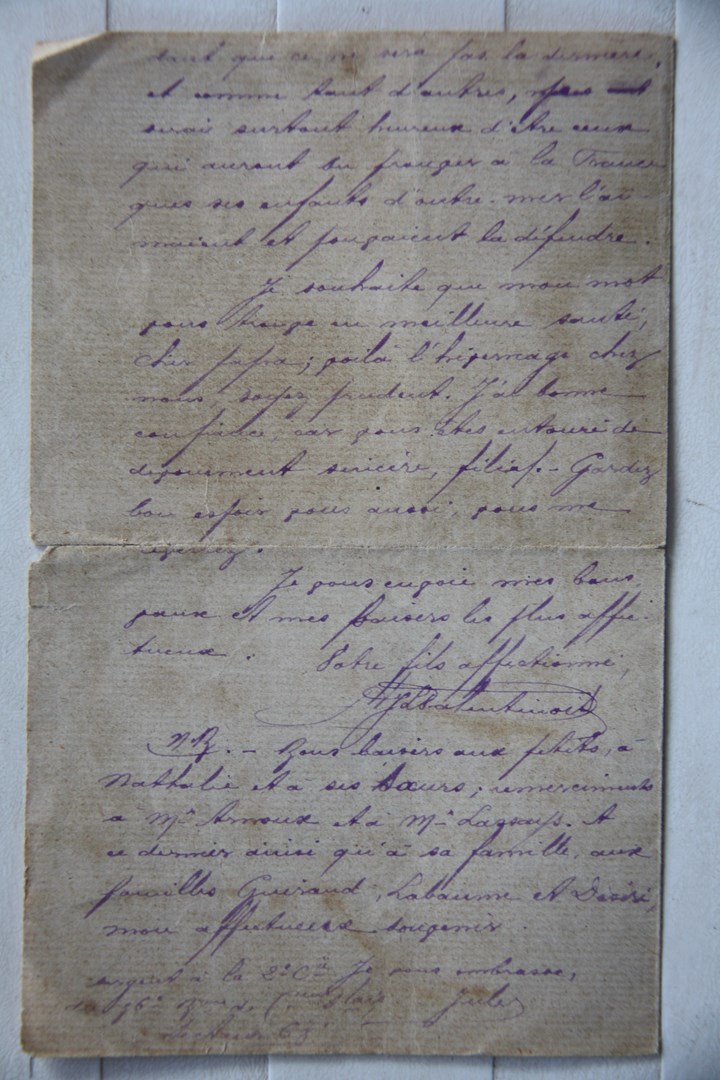 dant que ce ne sera pas la dernière,
et comme tant d'autres, nous
serais surtout heureux d'être ceux
qui auront pu prouver à la France
que ses enfants d'outre-mer l'ai-
maient et pouvaient la défendre.
Je souhaite que mon mot
vous trouve en meilleure santé,
cher papa; voilà l'hivernage chez
nous, soyez prudent. J'ai bonne
confiance, car vous êtes entouré de
dévouement sincère, filial. - Gardez
bon espoir vous aussi, vous me
reverrez.
Je vous envoie mes bons
vœux et mes baisers les plus affec-
tueux. Votre fils affectionné,
NB. - Bons baisers aux petits, à
Nathalie et à ses sœurs; remerciments
à Mr Arnoux et à Mr Lassays. A
ce dernier ainsi qu'à sa famille, aux
familles Guéraud, Labaume et Désiré,
mon affectueux souvenir.
Sergent à la 2e Cie Je vous embrasse,
Jules
Secteur 63